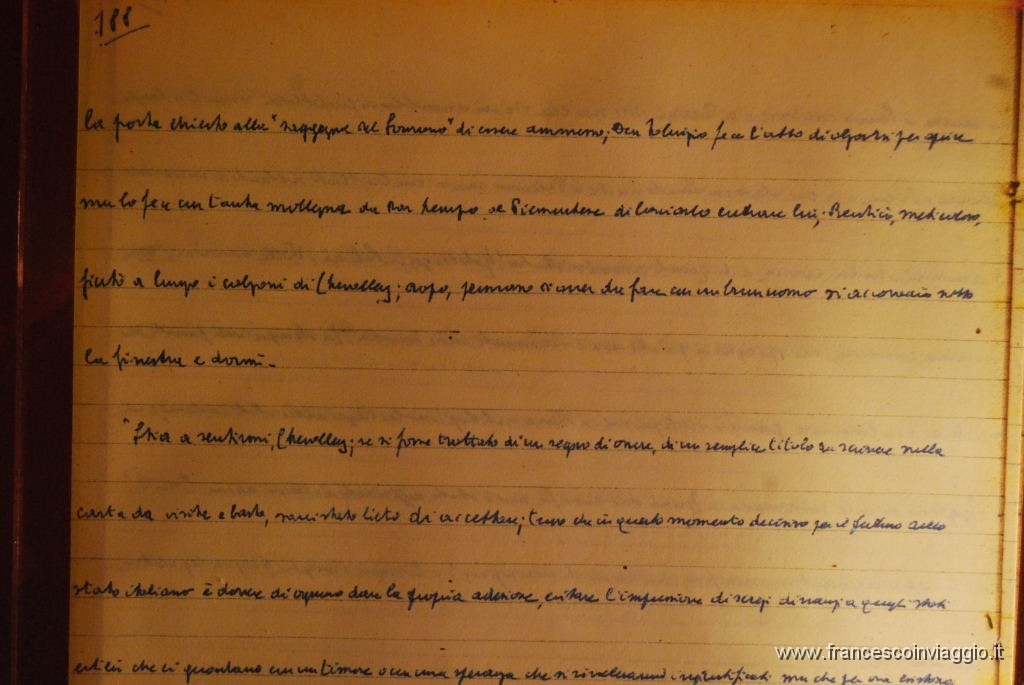 188
la porta chiesto alla "saggezza del Sovrano" di essere ammesso; Don Fabrizio fece l'atto di alzarsi per aprire
ma lo fece con tanta mollezza da dar tempo al Piemontese di lasciarlo entrare lui; Bendicò, meticoloso,
fiutò a lungo i calzoni di Chevalley; dopo, persuaso di aver da fare con un buon uomo si accovacciò sotto
la finestra e dormì.
"Stia a sentirmi, Chevalley; se si fosse trattato di un segno di onore, di un semplice titolo da scrivere sulla
carta da visita e basta, sarei stato lieto di accettare; trovo che in questo momento decisivo per il futuro dello
stato italiano è dovere di ognuno dare la propria adesione, evitare l'impressione di screzi dinanzi a quegli stati
esteri che ci guardano con un timore o con una speranza che si riveleranno ingiustificati ma che per ora esistono
www.francescoinviaggio.it